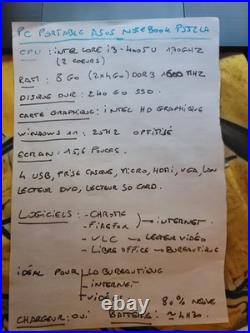 PC PORTABLE ASUS NOTEBOOK P552LA
CPU : INTEL CORE i3-4005U 1.70GHZ
(2 COEURS)
RAM : 8 GO (2x4GO) DDR3 1600 MHZ
DISQUE DUR : 240 GO SSD
CARTE GRAPHIQUE : INTEL HD GRAPHIQUE
WINDOWS 11 : 25H2 OPTIMISÉ
ECRAN : 15,6 POUCES
4 USB, PRISE CASQUE, MICRO, HDMI, VGA, LAN
LECTEUR DVD, LECTEUR SD CARD.
LOGICIELS : - CHROME
- FIREFOX → INTERNET
- VLC → LECTEUR VIDÉO
- LIBRE OFFICE → BUREAUTIQUE
IDÉAL POUR LA BUREAUTIQUE
- INTERNET
- VIDÉO
80% NEUVE
CHARGEUR : OUI BATTERIE ≃ 4H30